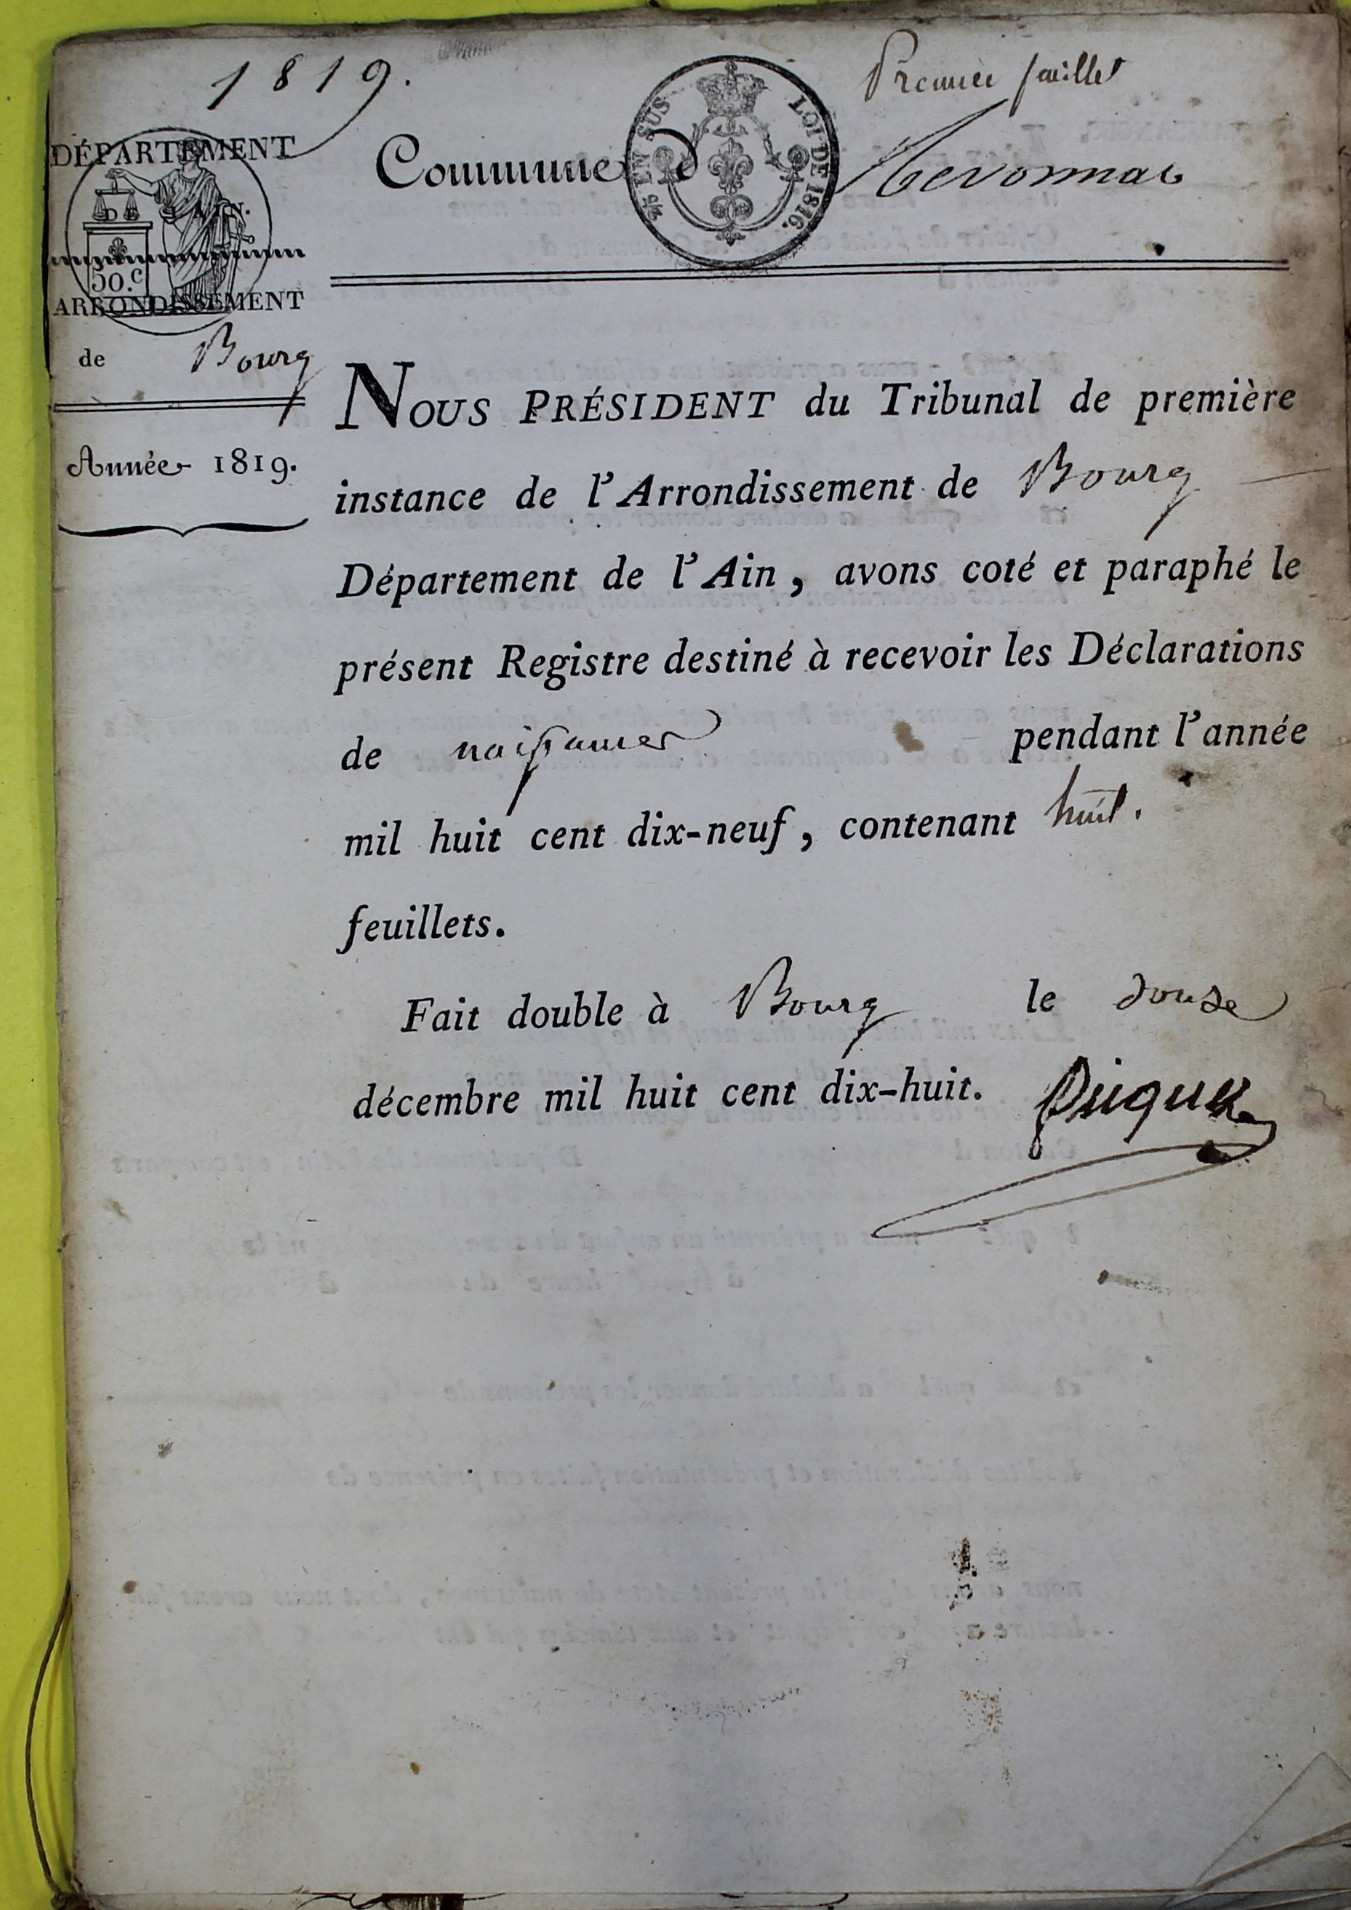 1819.
Premier feuillet
DÉPARTEMENT
DE L'AIN.
50.c
ARRONDISSEMENT
de Bourg
Année 1819.
Commune d Revonnas
5/5 EN SUS
LOI DE 1816.
NOUS PRÉSIDENT du Tribunal de première
instance de l'Arrondissement de Bourg
Département de l'Ain, avons coté et paraphé le
présent Registre destiné à recevoir les Déclarations
de naissances pendant l'année
mil huit cent dix-neuf, contenant huit.
feuillets.
Fait double à Bourg le douze
décembre mil huit cent dix-huit.